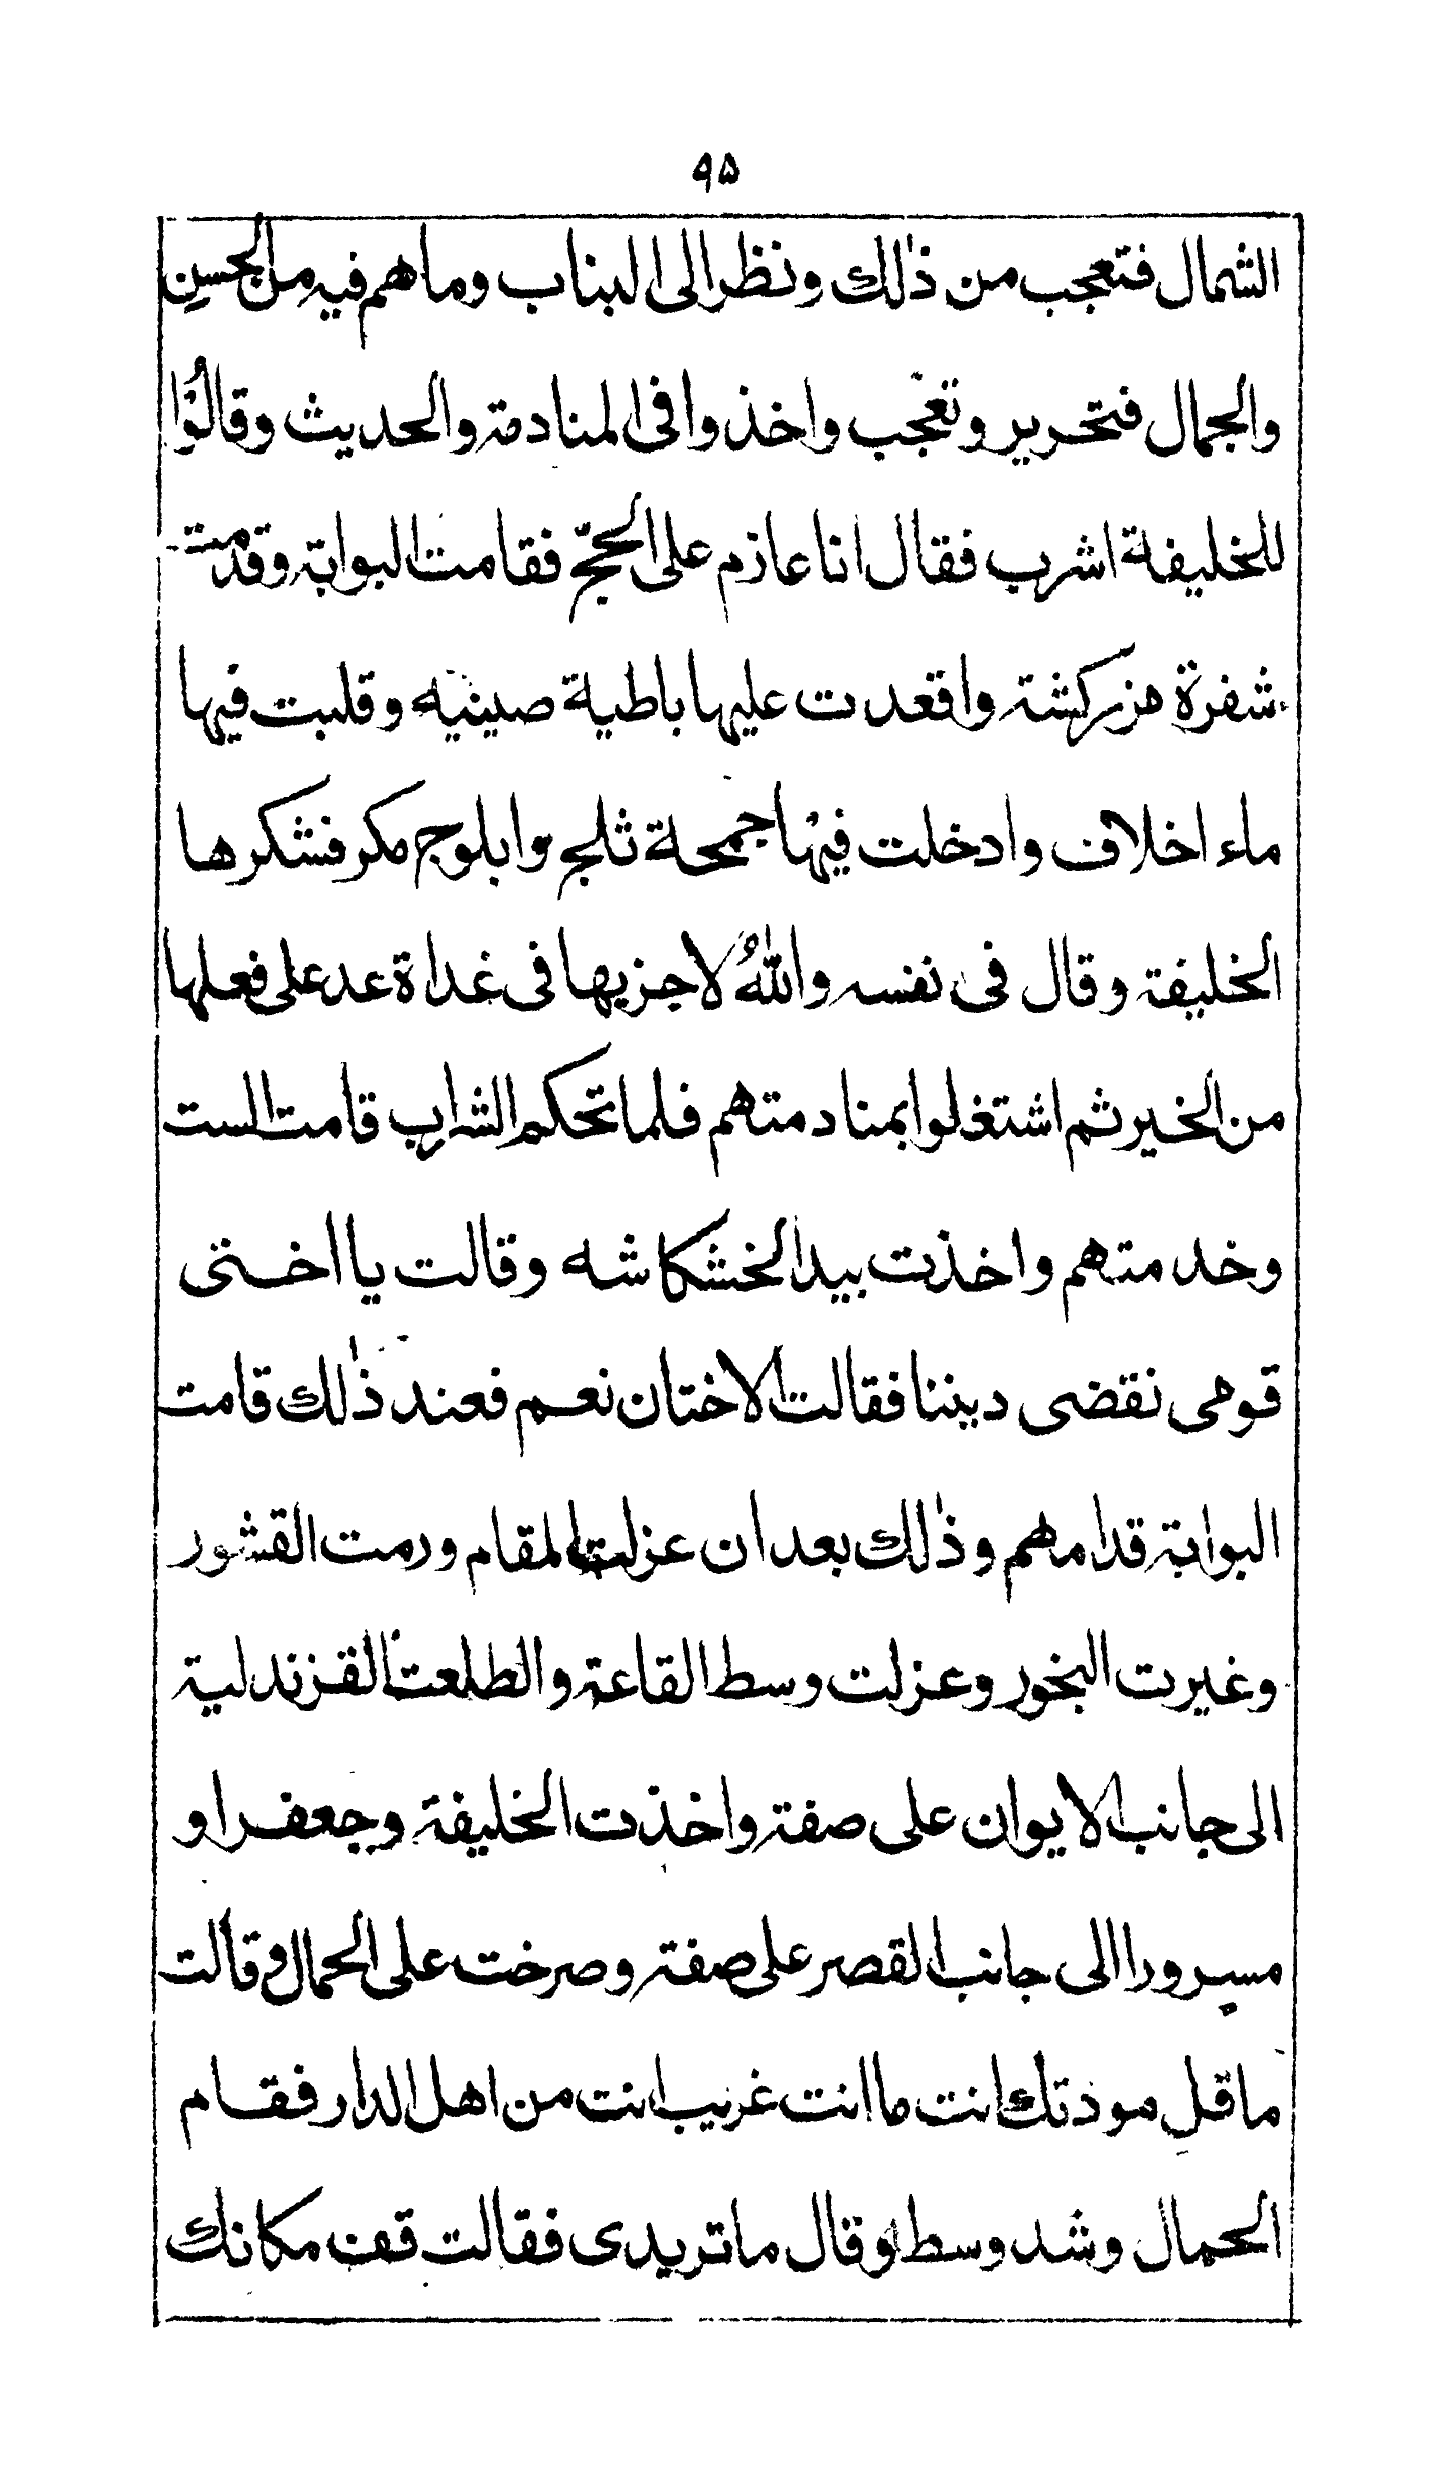 ٩٥
الشمال فتعجب من ذٰلك ونظر الى البناب وما هم فيه من الحسن
والجمال فتحرير وتعجب واخذوا فى المنادمة والحديث وقالوا
للخليفة اشرب فقال انا عازم على الحجّ فقامت البوابة وقدمت
شفرة مزركشة واقعدت عليها باطية صينيه وقلبت فيها
ماء اخلاف وادخلت فيها جمحة ثلج وابلوج مكر فشكرها
الخليفة وقال فى نفسه واللّٰه لاجزيها فى غداة عد على فعلها
من الخير ثم اشتغلوا بمنادمتهم فلما تحكم الشراب قامت الست
وخدمتهم واخذت بيد الخشكاشه وقالت يا اختى
قومى نقضى ديننا فقالت الاختان نعم فعند ذٰلك قامت
البوابة قدامهم وذٰلك بعد ان عزلت المقام ورمت القشور
وغيرت البخور وعزلت وسط القاعة والطلعت القزندلية
الى جانب الايوان على صفة واخذت الخليفة وجعفرا و
مسرورا الى جانب القصر على صفة وصرخت على الحمال وقالت
ما قل موذتك انت ما انت غريب انت من اهل الدار فقام
الحمال وشد وسطه وقال ما تريدى فقالت قف مكانك